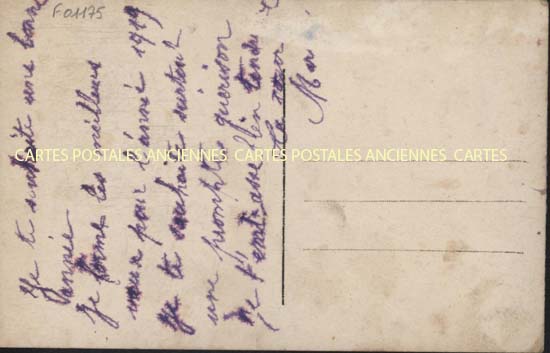 F01175
Je te souhaite une bonne
année
Je forme les meilleurs
vœux pour l'année 1919
Je te souhaite surtout
une prompte guérison
Je t'embrasse bien tendre
CARTES POSTALES ANCIENNES CARTES POSTALES ANCIENNES CARTES